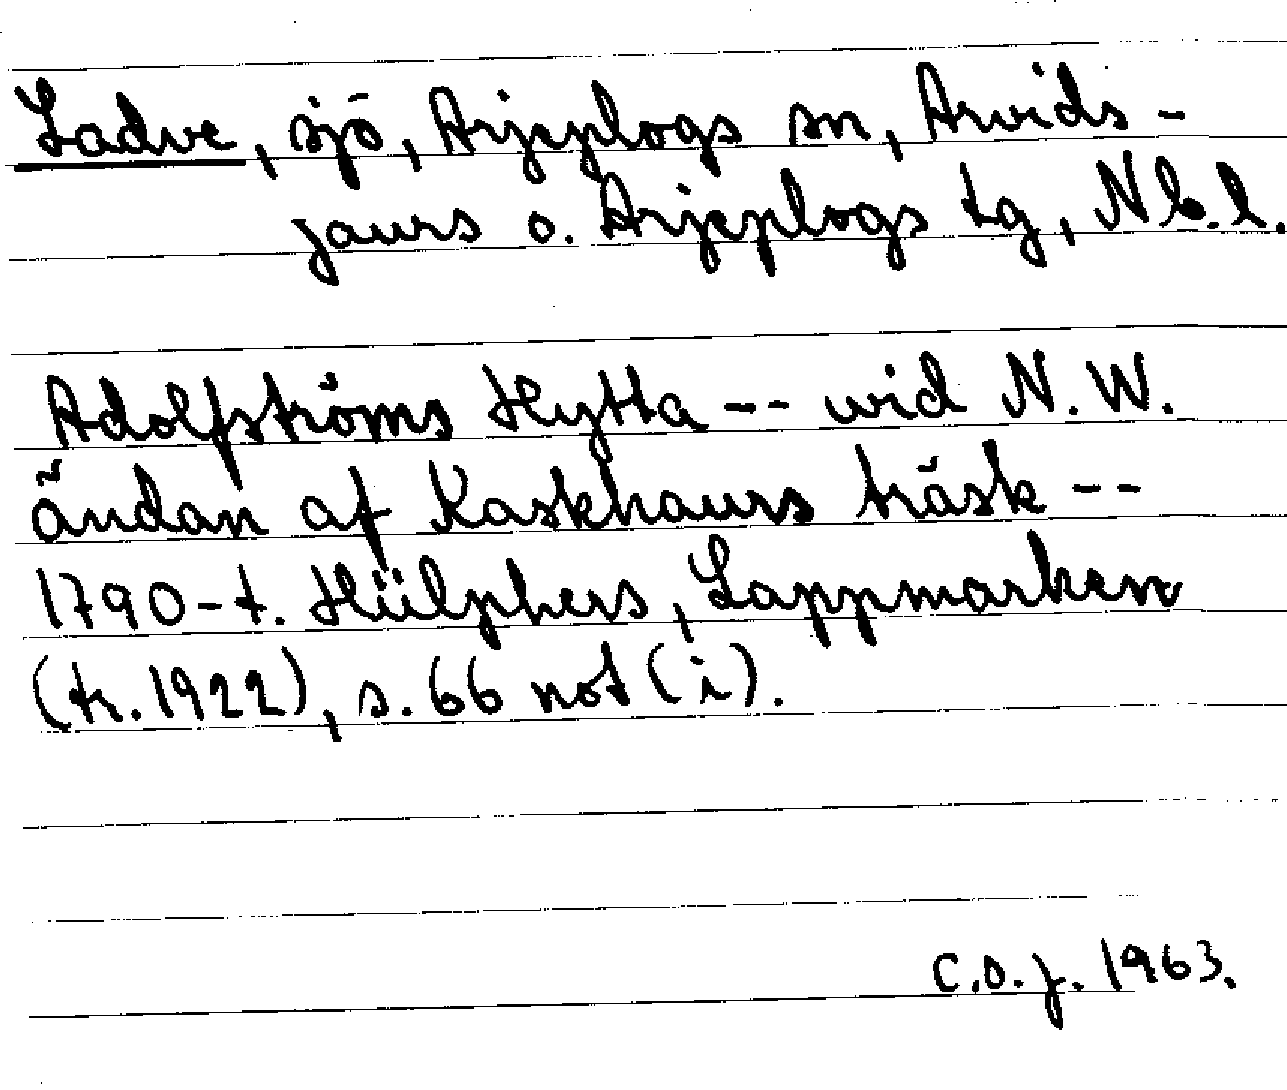 Ladve, sjö, Arjeplogs sn, Arvids-
jaurs o. Arjeplogs tg, Nb.l.
Adolfströms Hytta -- wid N. W.
ändan af Kaskhaurs träsk --
1790-t. Hülphers, Lappmarken
(tr. 1922), s. 66 not (i).
C.O.J. 1963.